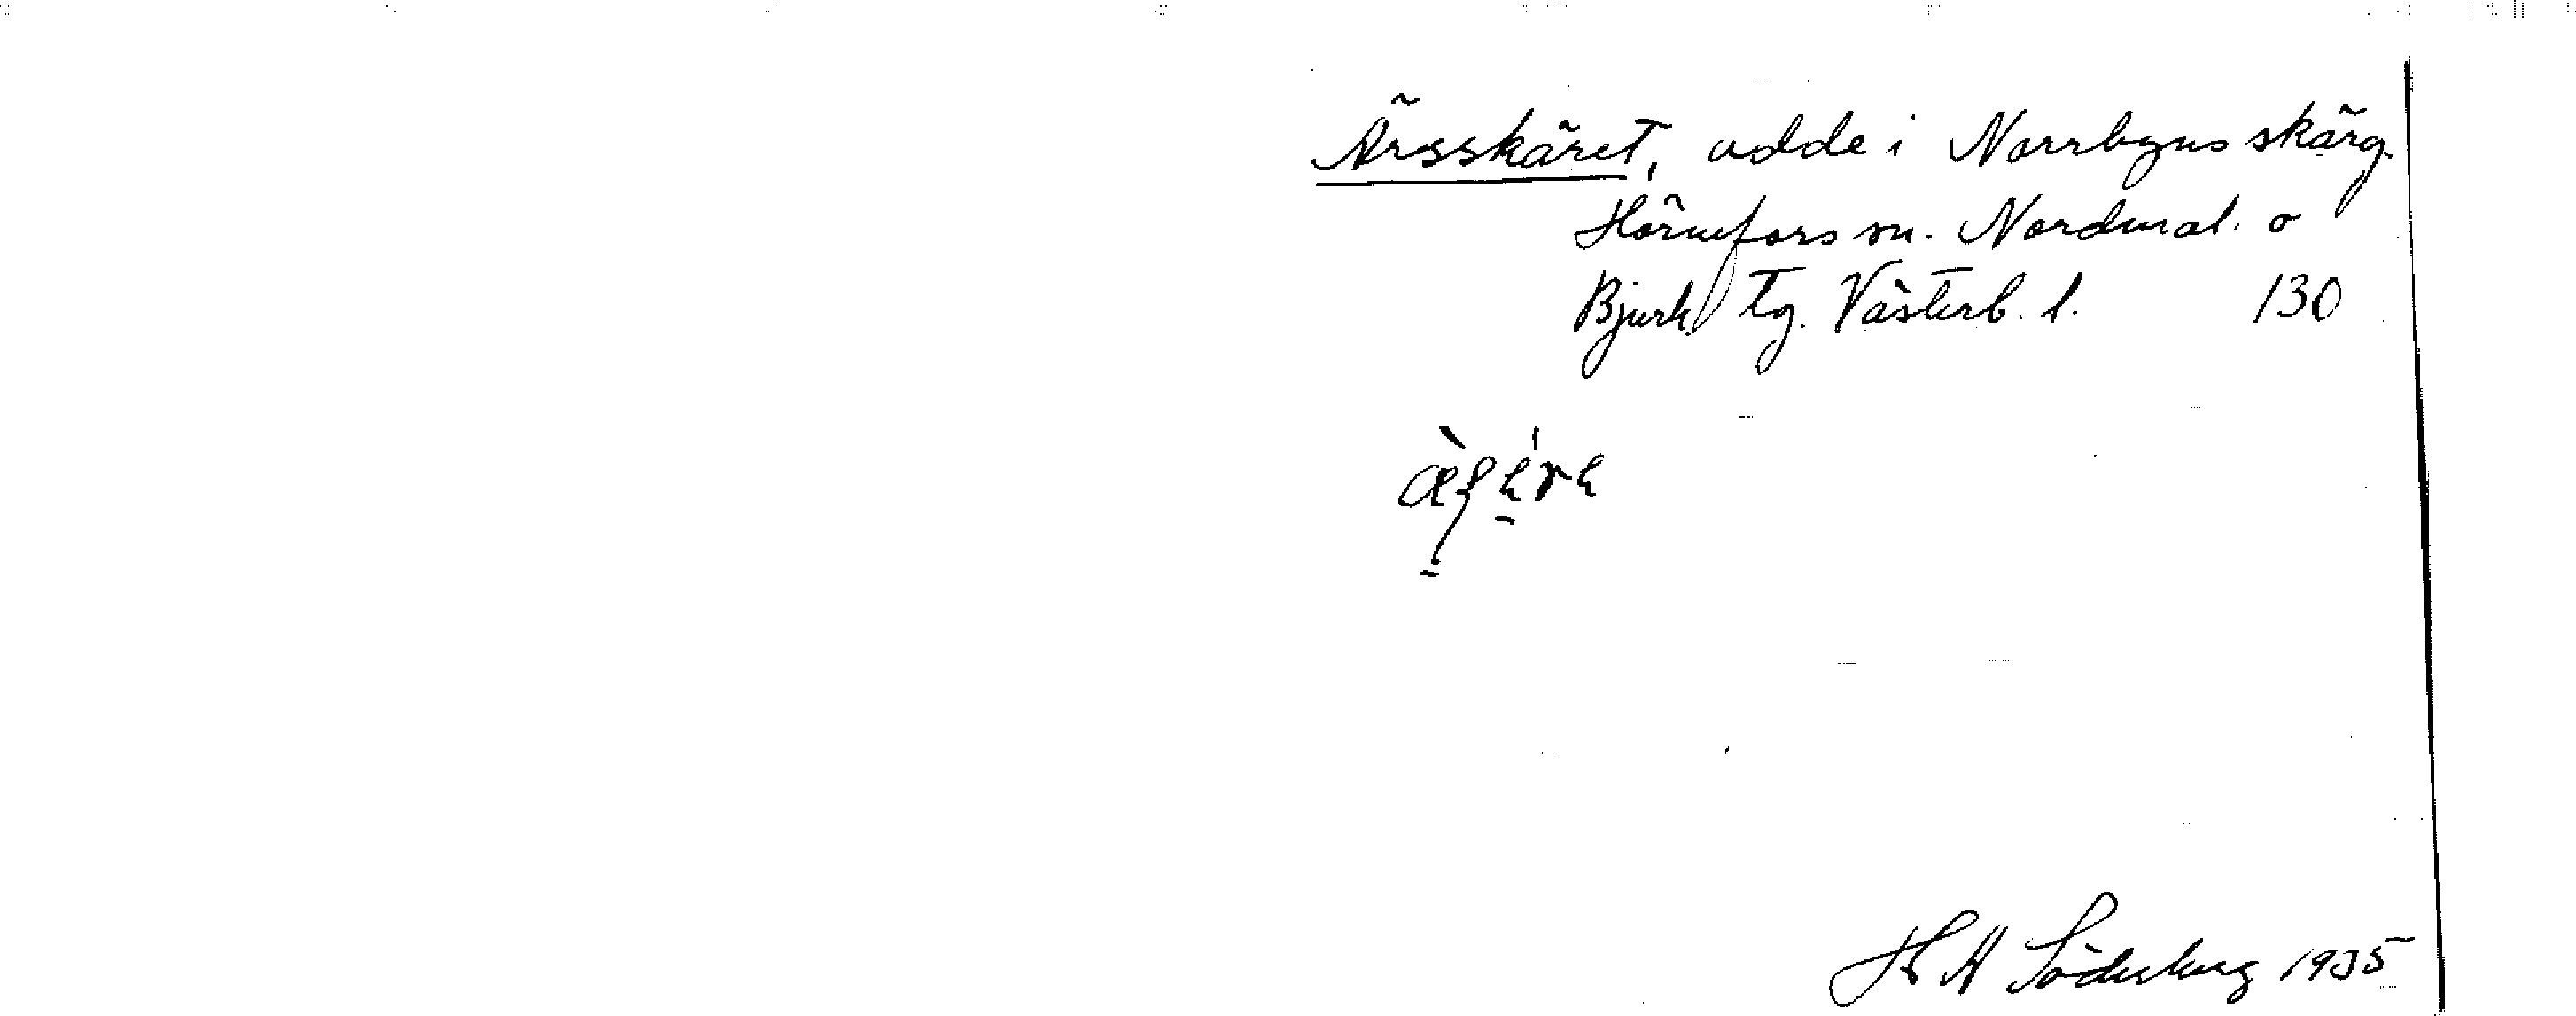 Ärsskäret, udde i Norrbyns skärg.
Hörnefors sn. Nordmal. o
Bjurh. tg. Västerb. l. 130
H A Söderberg 1935